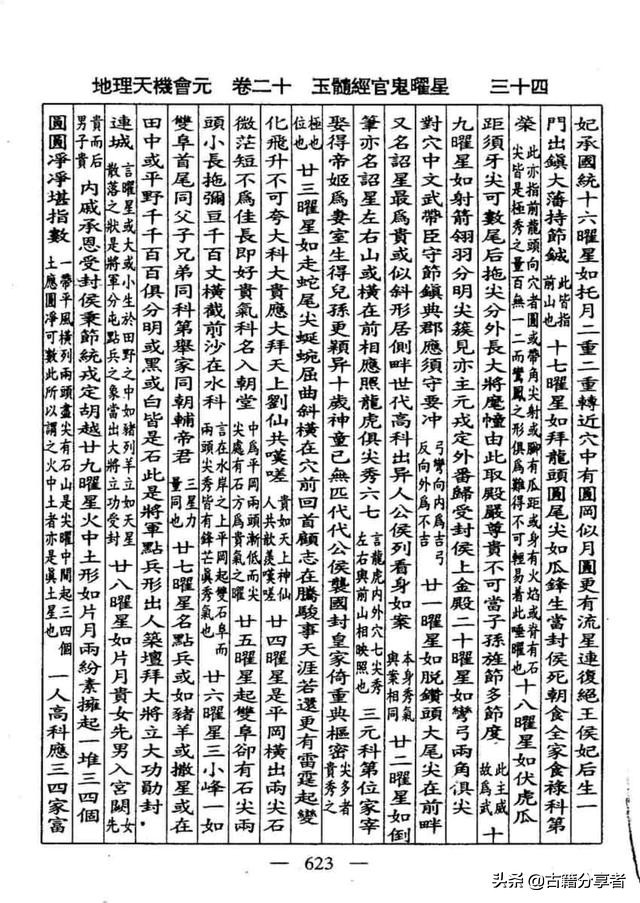 地理天機會元　卷二十　玉髓經官鬼曜星　三十四
妃承國統十六曜星如托月二重二重轉近穴中有圓岡似月圓更有流星連復絕王侯妃后生一
門出鎭大藩持節鉞此皆指前山也十七曜星如拜龍頭圓尾尖如瓜鋒生當封侯死朝食全家食祿科第
榮此亦指前龍頭向穴者圓或帶角尖射或腳有瓜距或身有火焰或脊有石尖皆是極秀之量百無一二而鸞鳳之形俱爲難得不可輕易着此唾曜也十八曜星如伏虎瓜
距須牙尖可數尾后拖尖分外長大將麾幢由此取殿嚴尊貴不可當子孫旌節多節度此主威故爲武十
九曜星如射箭翎羽分明尖簇見亦主元戎定外番歸受封侯上金殿二十曜星如彎弓兩角俱尖
對穴中文武帶臣守節鎭典郡應須守要冲弓彎向內爲吉弓反向外爲不吉廿一曜星如脱鑽頭大尾尖在前畔
又名詔星最爲貴或似斜形居側畔世代高科出異人公侯列看身如案本身秀氣與案相同廿二曜星如倒
筆亦名詔星左右山或橫在前相應照龍虎俱尖秀六七言龍虎內外穴七尖秀左右與前山相映照也三元科第位家宰
娶得帝姬爲妻室生得兒孫更穎异十歲神童已無匹代代公侯襲國封皇家倚重典樞密尖多者貴秀之
極也位也廿三曜星如走蛇尾尖蜒蜿屈曲斜橫在穴前回首顧志在騰駿事天涯若還更有雷霆起變
化飛升不可夸大科大貴應大拜天上劉仙共嘆嗟貴如天上神仙人共歆羨嘆嗟廿四曜星是平岡橫出兩尖石
微茫短不爲佳長即好貴氣科名入朝堂中爲平岡兩頭漸低而尖尖處有石方爲貴氣之曜廿五曜星起雙阜卻有石尖兩
頭小長拖彌亘千百丈橫截前沙在水科言在水岸之上平岡起雙石阜而兩頭尖秀皆有鋒芒眞秀氣也廿六曜星三小峰一如
雙阜首尾同父子兄弟同科第舉家同朝輔帝君三星力量同也廿七曜星名點兵或如豬羊或撒星或在
田中或平野千千百百俱分明或黑或白皆是石此是將軍點兵形出人築壇拜大將立大功勛封．
連城言曜星或大或小生於田野之中如豬列羊立如天星散落之狀是將軍分屯點兵之象當出大將立功受封廿八曜星如片月貴女先男入宮闕女先
貴而后男子貴內戚承恩受封侯秉節統戎定胡越廿九曜星火中土形如片月兩紛素擁起一堆三四個
圓圓凈凈堪指數一帶平風橫列兩頭盡尖有石山是尖曜中間起三四個土應圓凈可數此所以謂之火中土者亦是眞土星也一人高科應三四家富
— 623 —
头条 @古籍分享者